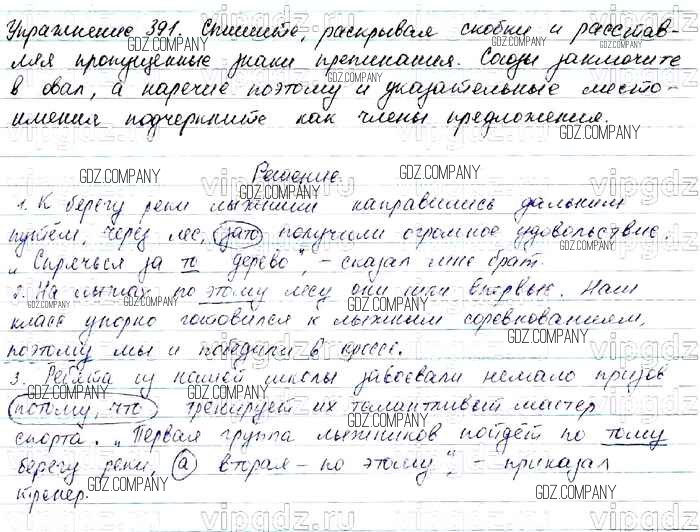 Упражнение 391. Спишите, раскрывая скобки и расстав-
ляя пропущенные знаки препинания. Союзы заключите
в овал, а наречие поэтому и указательные место-
имения подчеркните как члены предложения.
Решение.
1. К берегу реки лыжники направились дальним
путём, через лес, зато получили огромное удовольствие.
"Спрячься за то дерево", - сказал мне брат.
2. На лыжах по этому лесу они шли впервые. Наш
класс упорно готовился к лыжным соревнованиям,
поэтому мы и победили в кроссе.
3. Ребята из нашей школы завоевали немало призов
потому, что тренирует их талантливый мастер
спорта. "Первая группа лыжников пойдёт по тому
берегу реки, а вторая - по этому", - приказал
тренер.